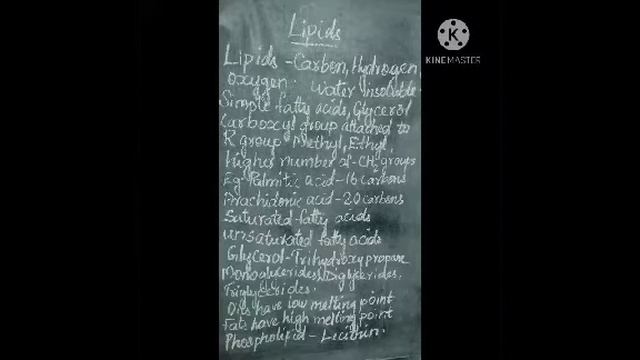 Lipids
Lipids - Carbon, Hydrogen,
oxygen. Water insoluble.
Simple fatty acids, Glycerol
Carboxyl group attached to
R group Methyl, Ethyl,
higher number of -CH2 groups
Eg: Palmitic acid - 16 carbons
Arachidonic acid - 20 carbons
Saturated fatty acids
unsaturated fatty acids
Glycerol - Trihydroxy propane
Monoglycerides, Diglycerides,
Triglycerides.
Oils have low melting point
Fats have high melting point
Phospholipid - Lecithin.
K
KINEMASTER